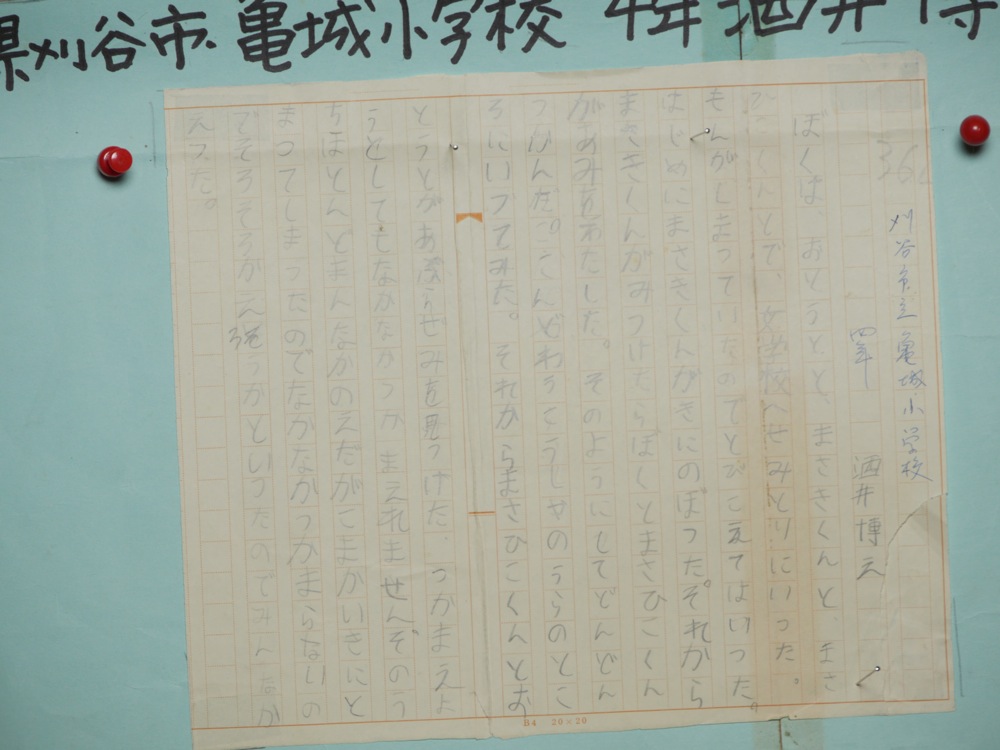 県刈谷市 亀城小学校 4年 酒井 博
36
刈谷市立亀城小学校
四年
酒井博
ぼくは、おとうとと、まさきくんと、まさ
ひこくんとで、女学校へせみとりにいった。
もんがしまっていたのでとびこえてはいった。
はじめにまさきくんがきにのぼったぞれから
まさきくんがみつけたらぼくとまさひこくん
があみをわたした。そのようにしてどんどん
つかんだ。こんどわうこうしゃのうらのとこ
ろにいってみた。それからまさひこくんとお
とうとがあぶらぜみを見つけた、つかまえよ
うとしてもなかなかつかまえれませんぞのう
ちほとんとまんなかのえだがこまかいきにと
まってしまったのでなかなかつかまらないの
でそろそろかえろうかといったのでみんなか
えった。
B4 20×20